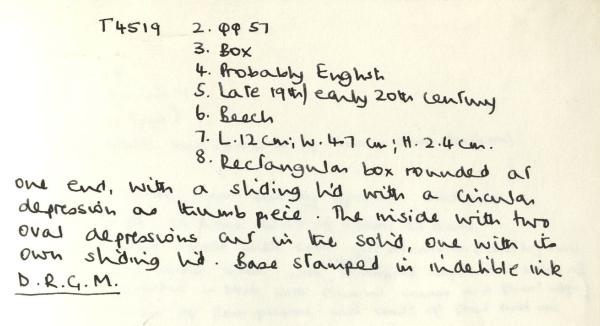 T4519 2. φφ 57
3. Box
4. Probably English
5. Late 19th/early 20th century
6. Beech
7. L. 12 cm; W. 4.7 cm; H. 2.4 cm.
8. Rectangular box rounded at
one end, with a sliding lid with a circular
depression as thumb piece. The inside with two
oval depressions cut in the solid, one with its
own sliding lid. Base stamped in indelible ink
D.R.G.M.